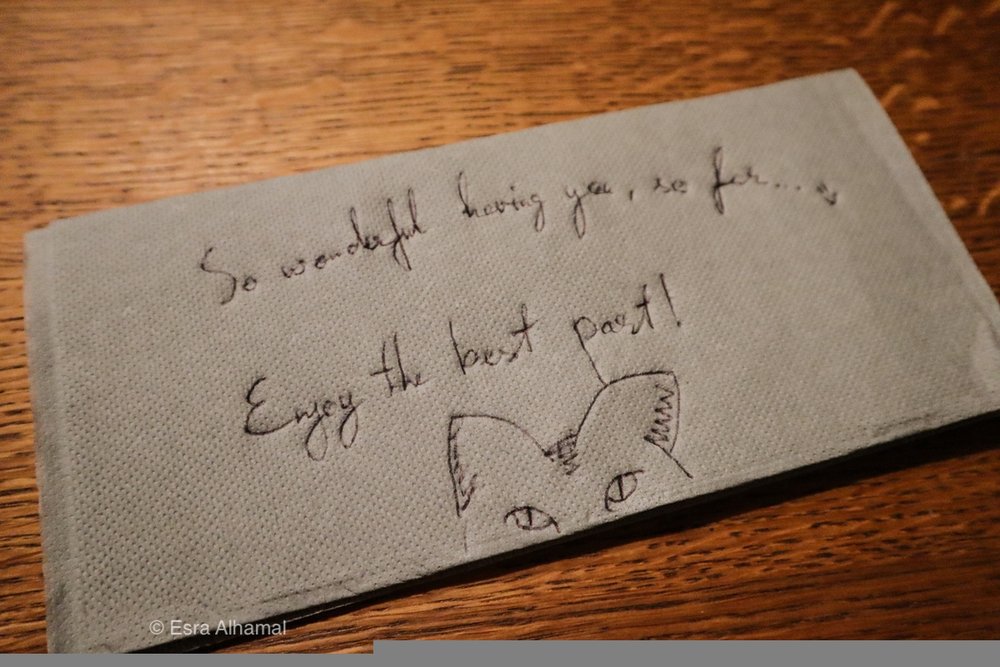 So wonderful having you, so far...
Enjoy the best part!
© Esra Alhamal